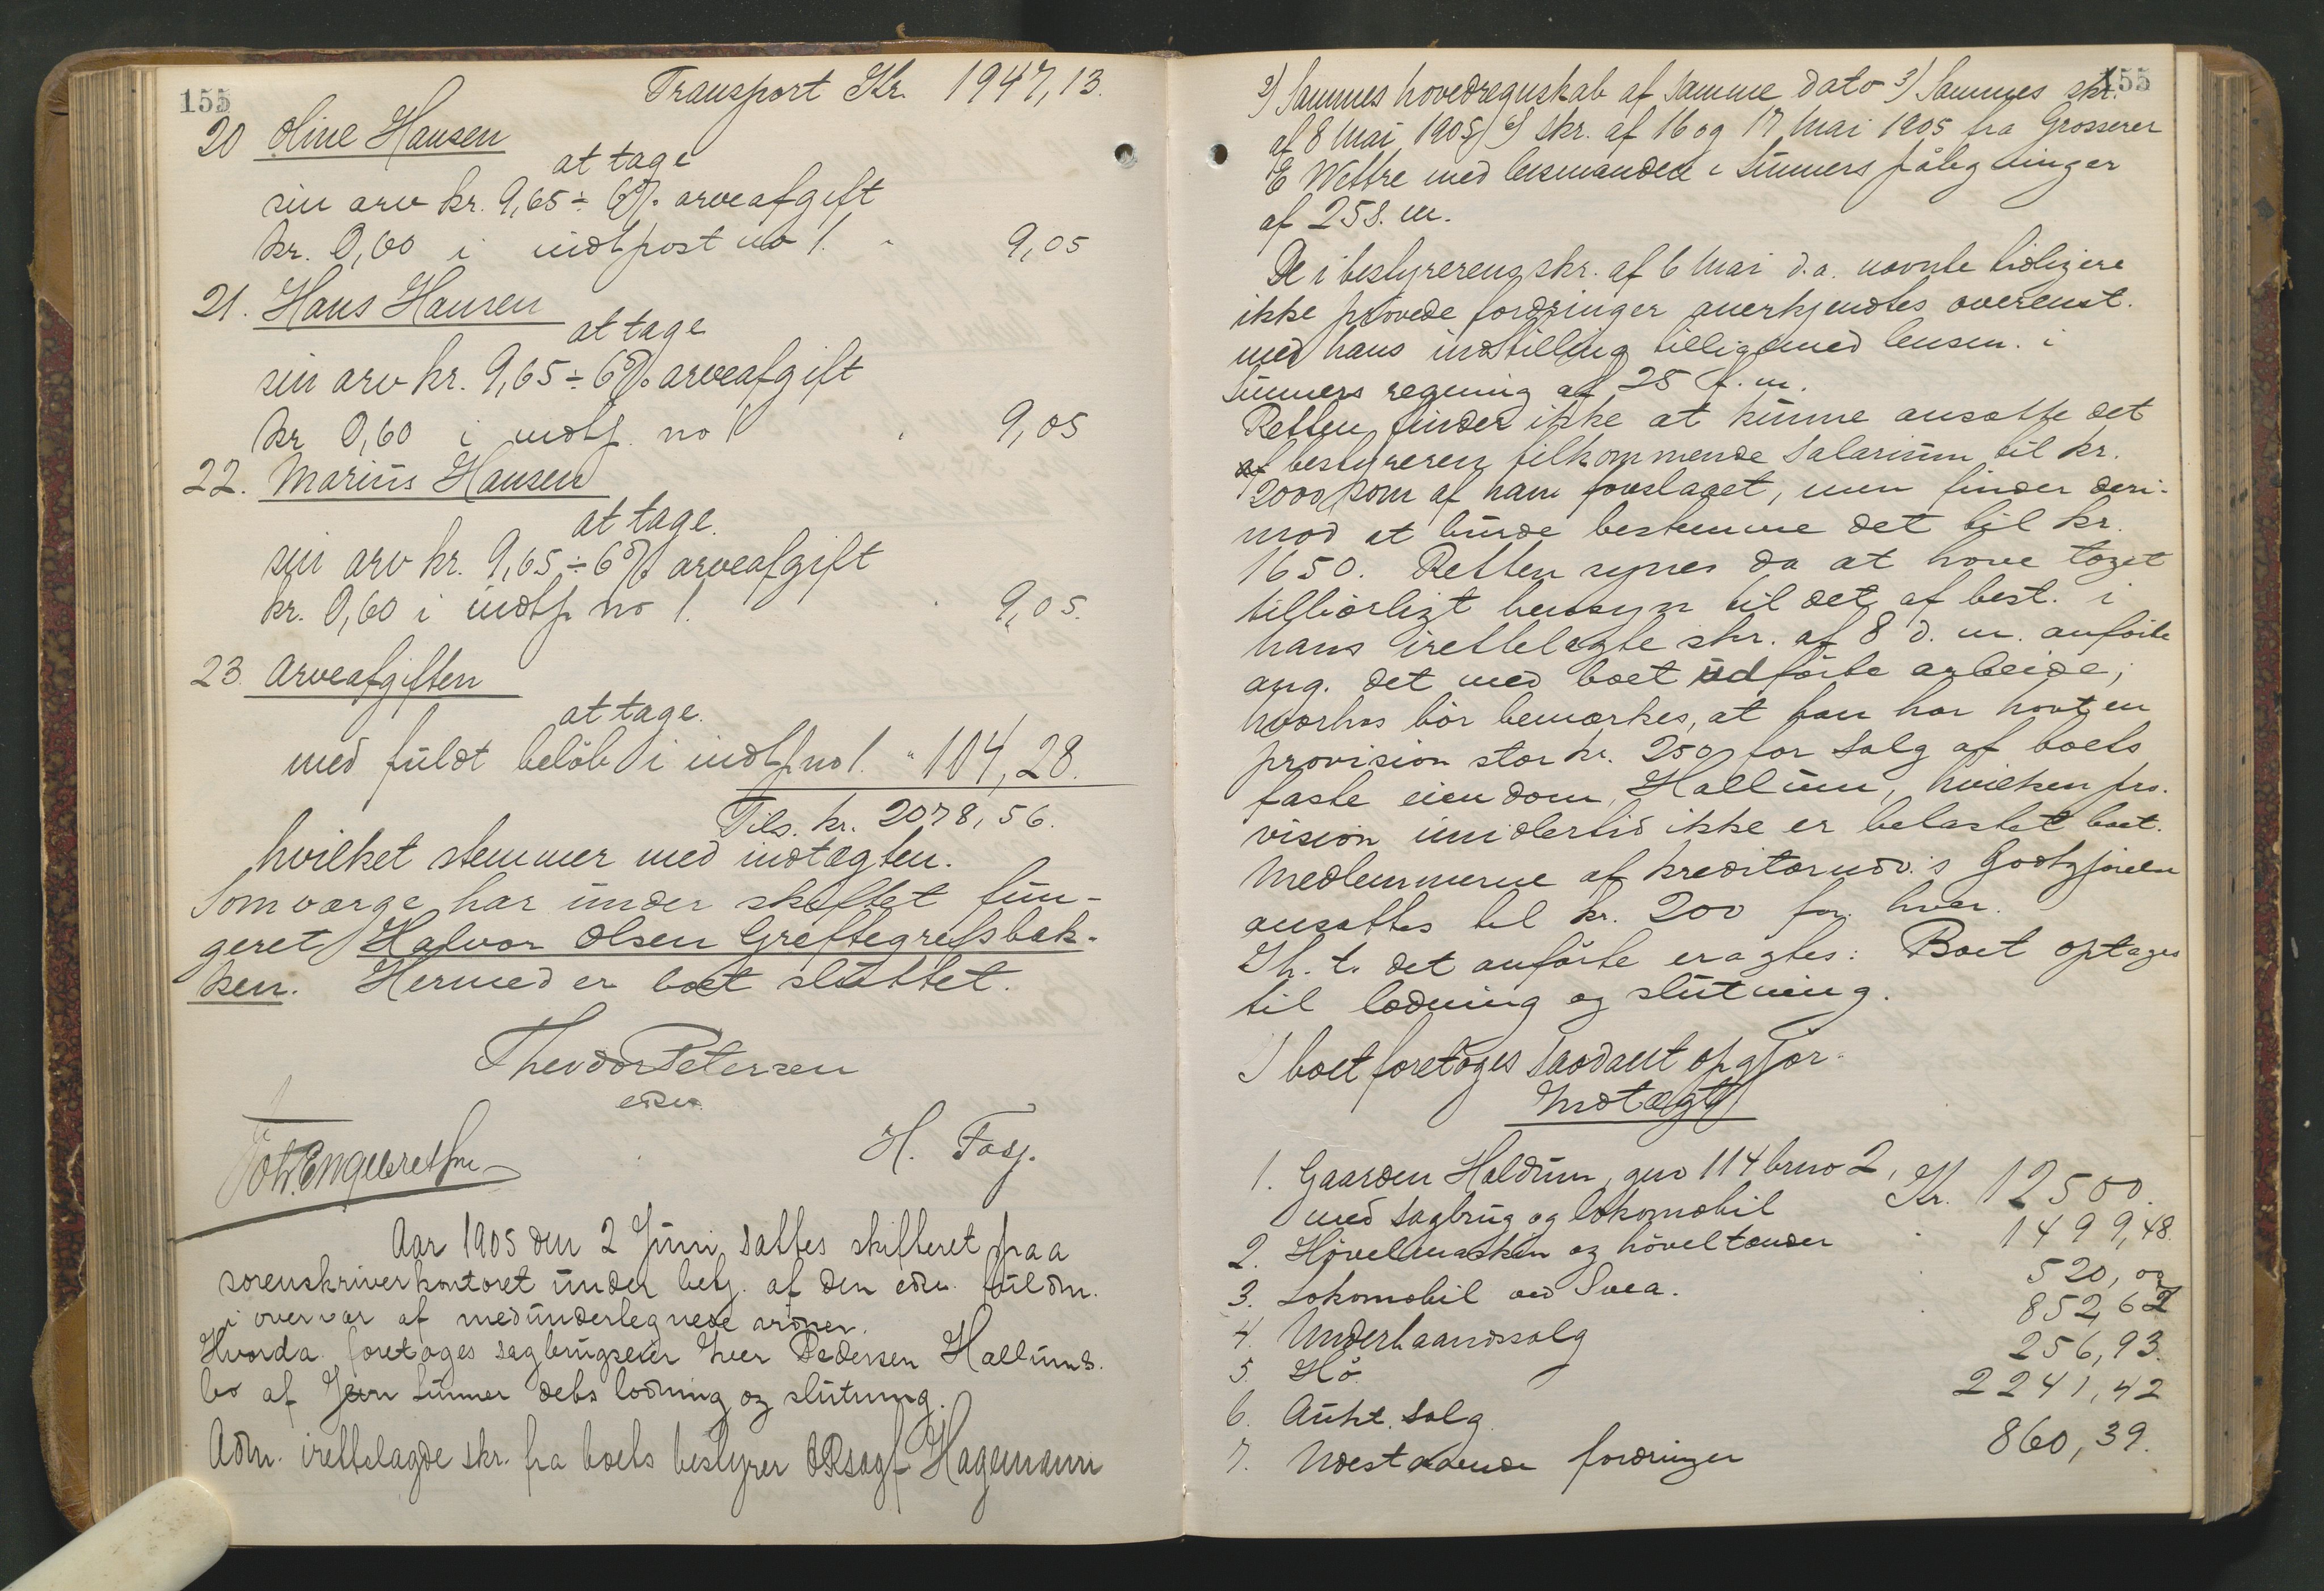 155
Transport Kr. 1947,13.
20 Oline Hansen
at tage
sin arv kr. 9,65 ÷ 6% arveafgift
kr. 0,60 i indtpost no 1. " 9,05
21. Hans Hansen
at tage
sin arv kr. 9,65 ÷ 6% arveafgift
kr 0,60 i indtp. no 1 " 9,05
22. Marius Hansen
at tage.
sin arv kr. 9,65 ÷ 6% arveafgift
kr. 0,60 i indtp no 1. " 9,05.
23. Arveafgiften
at tage.
med fuldt beløb i indtp no 1. " 104,28.
Tils. kr. 2078,56.
hvilket stemmer med indtægten.
Som værge har under skiftet fun-
geret Halvor Olsen Greftegrefsbak-
ken. Hermed er boet sluttet.
Theodor Petersen
edsv.
Joh. Engebretsen
H. Fosj.
Aar 1905 den 2 Juni sattes skifteret paa
sorenskriverkontoret under best. af den edsv. fuldm.
i overvær af medunderlegnede vidner.
Hvorda foretoges sagbrugseier Iver Pedersen Hallums.
bo af Jevn dets lodning og slutning.
Adm. irettelagde skr. fra boets bestyrer ORsagf. Hagemann
155
2) Sammes hovedregnskab af samme dato 3) Sammes skr.
af 8 Mai 1905 skr. af 16 og 17 Mai 1905 fra Grosserer
E Wettre med lensmanden i Lunners påtegninger
af 25 s. m.
De i bestyrerens skr. af 6 Mai d.a. nævnte tidligere
ikke prøvede fordringer anerkjendtes overenst.
med hans indstilling tilligemed lensm. i
Lunners regning af 25 f. m.
Retten finder ikke at kunne ansætte det
af bestyreren tilkommende Salarium til kr.
2000 som af ham foreslaaet, men finder deri-
mod at burde bestemme det til kr.
1650. Retten synes da at have taget
tilbørligt hensyn til det af best. i
hans irettelagte skr. af 8 d. m. anførte
ang. det med boet udførte arbeide,
hvorhos bør bemærkes, at han har havt en
provision stor kr. 250 for Salg af boets
faste eiendom, Hallum, hvilken pro-
vision imidlertid ikke er belastet boet.
Medlemmerne af kreditorudv.'s Godtgjørelse
ansattes til kr. 200 for hver.
I h. t. det anførte eragtes: Boet optages
til lodning og slutning.
I boet foretoges saadant opgjør.
Indtægt
1. Gaarden Haldum, gno 114 brno 2,
med sagbrug og lokomobil Kr. 12500.
2. Høvelmaskin og høveltænder " 1499,48.
3. Lokomobil ved Svea. 520,00
4. Underhaandssalg 852,62
5. Hø 256,93.
6. Aukt. salg 2241,42
7. Udestaaende fordringer 860,39.